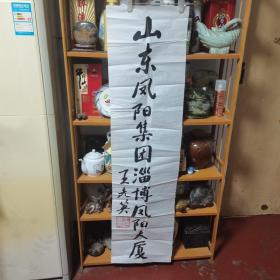 山东凤阳集团淄博凤阳大厦